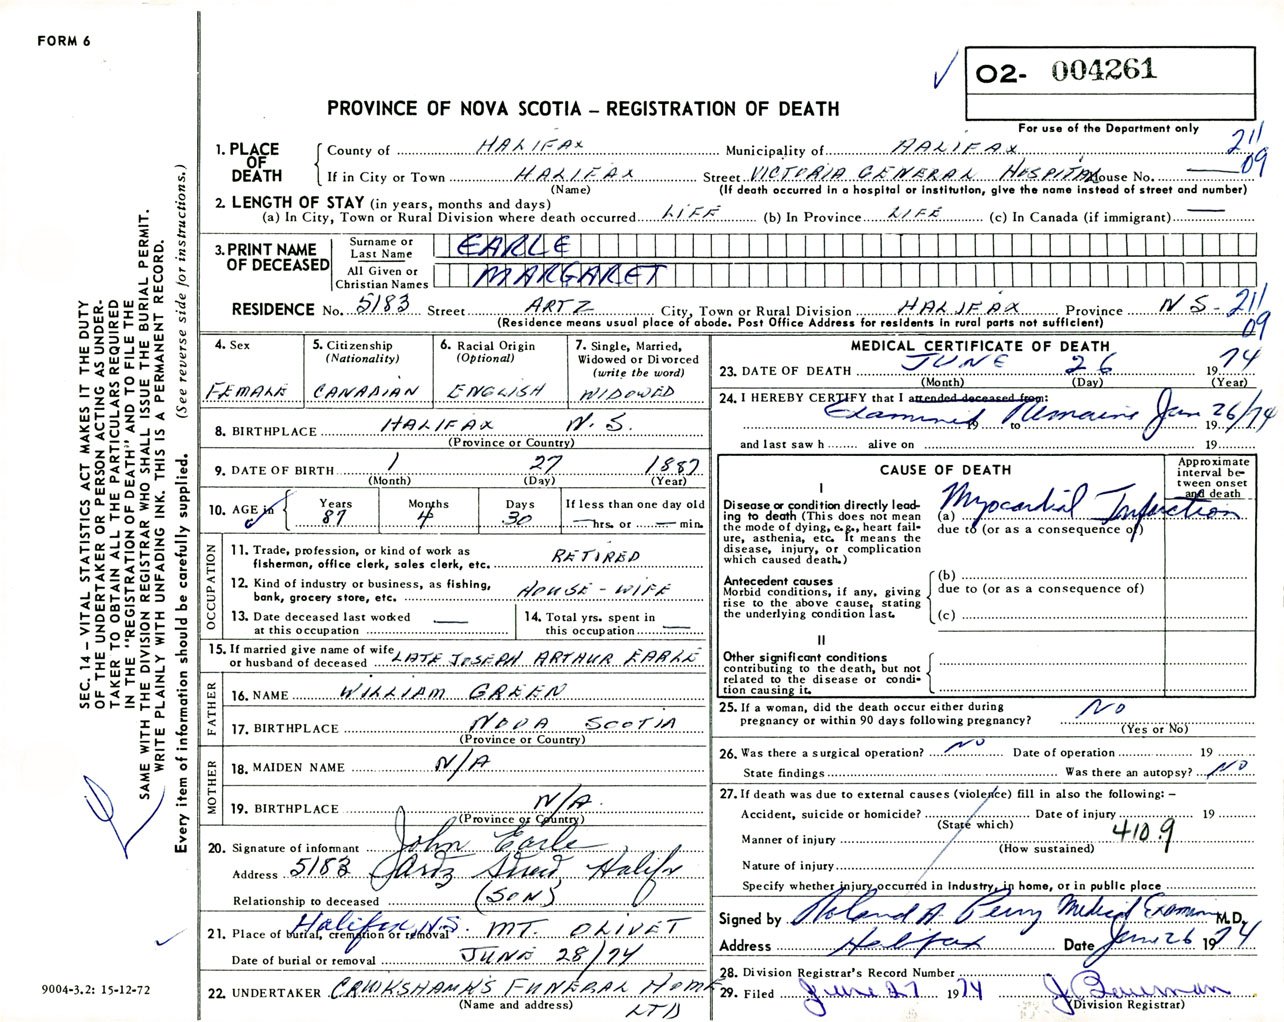 FORM 6
O2- 004261
PROVINCE OF NOVA SCOTIA – REGISTRATION OF DEATH
For use of the Department only
1. PLACE OF DEATH
County of HALIFAX Municipality of HALIFAX 211
If in City or Town HALIFAX Street VICTORIA GENERAL HOSPITAL House No. — 09
(Name) (If death occurred in a hospital or institution, give the name instead of street and number)
2. LENGTH OF STAY (in years, months and days)
(a) In City, Town or Rural Division where death occurred LIFE (b) In Province LIFE (c) In Canada (if immigrant) —
3. PRINT NAME OF DECEASED
Surname or Last Name EARLE
All Given or Christian Names MARGARET
RESIDENCE No. 5183 Street ARTZ City, Town or Rural Division HALIFAX Province N S - 211
09
(Residence means usual place of abode. Post Office Address for residents in rural parts not sufficient)
4. Sex
FEMALE
5. Citizenship
(Nationality)
CANADIAN
6. Racial Origin
(Optional)
ENGLISH
7. Single, Married,
Widowed or Divorced
(write the word)
WIDOWED
8. BIRTHPLACE HALIFAX N.S.
(Province or Country)
9. DATE OF BIRTH 1 27 1887
(Month) (Day) (Year)
10. AGE in Years 87 Months 4 Days 30 If less than one day old
— hrs. or — min.
OCCUPATION
11. Trade, profession, or kind of work as
fisherman, office clerk, sales clerk, etc. RETIRED
12. Kind of industry or business, as fishing,
bank, grocery store, etc. HOUSE-WIFE
13. Date deceased last worked
at this occupation —
14. Total yrs. spent in
this occupation —
15. If married give name of wife
or husband of deceased LATE JOSEPH ARTHUR EARLE
FATHER
16. NAME WILLIAM GREEN
17. BIRTHPLACE NOVA SCOTIA
(Province or Country)
MOTHER
18. MAIDEN NAME N/A
19. BIRTHPLACE N/A
(Province or Country)
20. Signature of informant John Earle
Address 5183 Artz Street Halifx
Relationship to deceased (SON)
21. Place of burial, cremation or removal Halifax N.S. MT. OLIVET
Date of burial or removal JUNE 28/74
22. UNDERTAKER CRUIKSHANKS FUNERAL HOME
(Name and address) LTD
MEDICAL CERTIFICATE OF DEATH
23. DATE OF DEATH JUNE 26 1974
(Month) (Day) (Year)
24. I HEREBY CERTIFY that I attended deceased from:
Examined Remains Jun 26/74
19 to 19
and last saw h alive on 19
CAUSE OF DEATH
Approximate
interval be-
tween onset
and death
I
Disease or condition directly lead-
ing to death (This does not mean
the mode of dying, e.g., heart fail-
ure, asthenia, etc. It means the
disease, injury, or complication
which caused death.)
(a) Myocardial Infarction
due to (or as a consequence of)
Antecedent causes
Morbid conditions, if any, giving
rise to the above cause, stating
the underlying condition last.
(b)
due to (or as a consequence of)
(c)
II
Other significant conditions
contributing to the death, but not
related to the disease or condi-
tion causing it.
25. If a woman, did the death occur either during
pregnancy or within 90 days following pregnancy? NO
(Yes or No)
26. Was there a surgical operation? NO Date of operation 19
State findings Was there an autopsy? NO
27. If death was due to external causes (violence) fill in also the following: –
Accident, suicide or homicide? Date of injury 19
(State which)
Manner of injury 410.9
(How sustained)
Nature of injury
Specify whether injury occurred in industry, in home, or in public place
Signed by Roland A. Perry Medical Examiner M.D.
Address Halifax Date Jun 26 1974
28. Division Registrar's Record Number
29. Filed June 27 1974 J. Bauman
(Division Registrar)
SEC. 14 – VITAL STATISTICS ACT MAKES IT THE DUTY
OF THE UNDERTAKER OR PERSON ACTING AS UNDER-
TAKER TO OBTAIN ALL THE PARTICULARS REQUIRED
IN THE "REGISTRATION OF DEATH" AND TO FILE THE
SAME WITH THE DIVISION REGISTRAR WHO SHALL ISSUE THE BURIAL PERMIT.
WRITE PLAINLY WITH UNFADING INK. THIS IS A PERMANENT RECORD.
Every item of information should be carefully supplied. (See reverse side for instructions.)
9004-3.2: 15-12-72